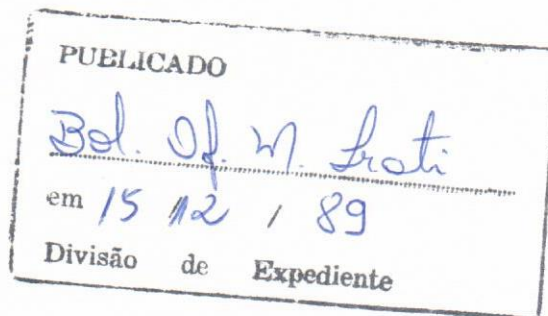 PUBLICADO
Bol. Of. M. Irati
em 15 12 / 89
Divisão de Expediente